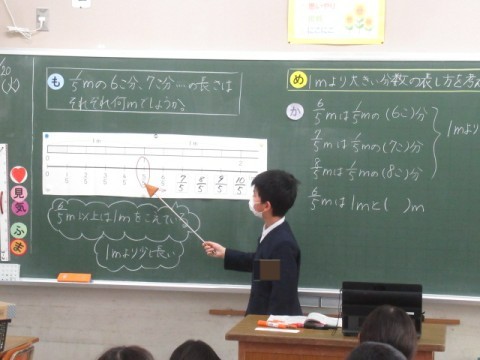 /20
(火)
も 1/5mの6こ分、7こ分…の長さは
それぞれ何mでしょうか。
め 1mより大きい分数の表し方を考
か 6/5mは1/5mの(6こ)分
7/5mは1/5mの(7こ)分
8/5mは1/5mの(8こ)分
1mより
6/5mは1mと( )m
1m 1m
0 1 2
0 1/5 2/5 3/5 4/5 5/5 6/5 7/5 8/5 9/5 10/5
6/5m以上は1mをこえている
1mより少し長い
見
気
ふ
ま